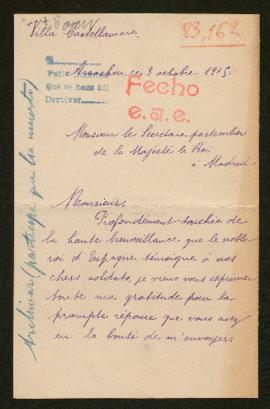 83,162
Villa Castellamare
ce 3 octobre 1915.
Que se hace así
Devolver
Fecho
e.a.e.
Monsieur le Secrétaire particulier
de Sa Majesté le Roi
à Madrid
Monsieur,
Profondément touchée de
la haute bienveillance que le noble
roi d'Espagne témoigne à nos
chers soldats, je viens vous exprimer
toute ma gratitude pour la
prompte réponse que vous avez
eu la bonté de m'envoyer.
Archivar (participa que ha muerto)